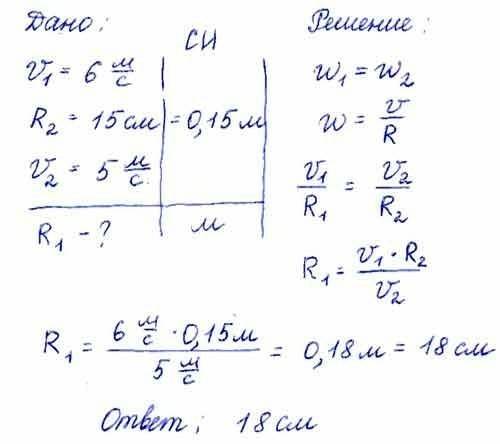 Дано:
СИ
υ₁ = 6 м/с
R₂ = 15 см = 0,15 м
υ₂ = 5 м/с.
R₁ - ?
м
Решение:
w₁ = w₂
w = υ/R
υ₁/R₁ = υ₂/R₂
R₁ = υ₁·R₂/υ₂
R₁ = 6 м/с · 0,15 м / 5 м/с = 0,18 м = 18 см
Ответ; 18 см